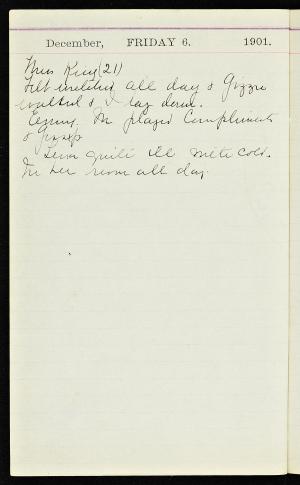 December, FRIDAY 6. 1901.
Miss King (21)
Felt wretched all day &
waited & I lay down.
Evening. We played Compliments
&
Lena quite ill with cold.
In her room all day.